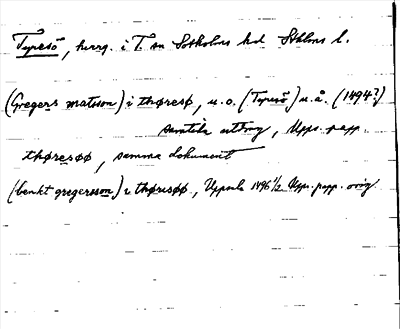 Tyresö, herrg. i T. sn Sotholms hd Sthlms l.
(Gregers matsson) i thøresø, u.o. (Tyresö) u.å. (1494?)
samtida utdrag, Upps. papp.
thøresøø, samma dokument
(benkt gregersson) i thøresøø, Uppsala 1496 1/2 Upps. papp. orig.